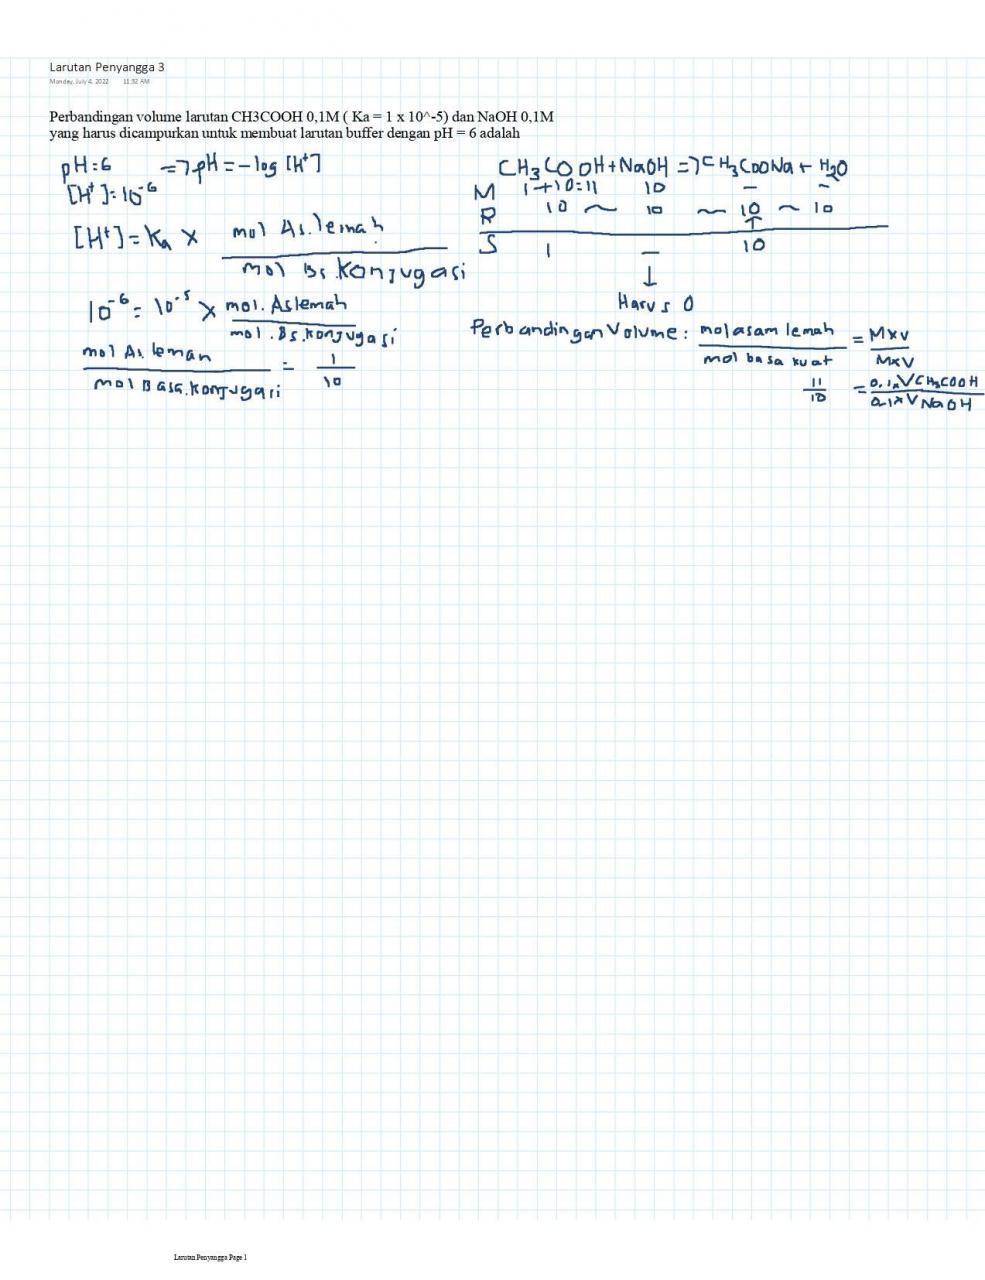 Larutan Penyangga 3
Monday, July 4, 2022 11:32 AM
Perbandingan volume larutan CH3COOH 0,1M ( Ka = 1 x 10^-5) dan NaOH 0,1M
yang harus dicampurkan untuk membuat larutan buffer dengan pH = 6 adalah
pH = 6 => pH = - log [H⁺]
[H⁺] = 10⁻⁶
[H⁺] = Ka × mol As. lemah
mol Bs. Konjugasi
10⁻⁶ = 10⁻⁵ × mol. As lemah
mol. Bs. konjugasi
mol As. lemah = 1
mol Basa. Konjugasi 10
CH₃COOH + NaOH => CH₃COONa + H₂O
M 1+10=11 10 - -
R 10 ~ 10 ~ 10 ~ 10
S 1 - 10
↓
Harus 0
Perbandingan Volume : mol asam lemah = M×V
mol basa kuat M×V
11 = 0.1×V CH₃COOH
10 0.1×V NaOH
Larutan Penyangga Page 1